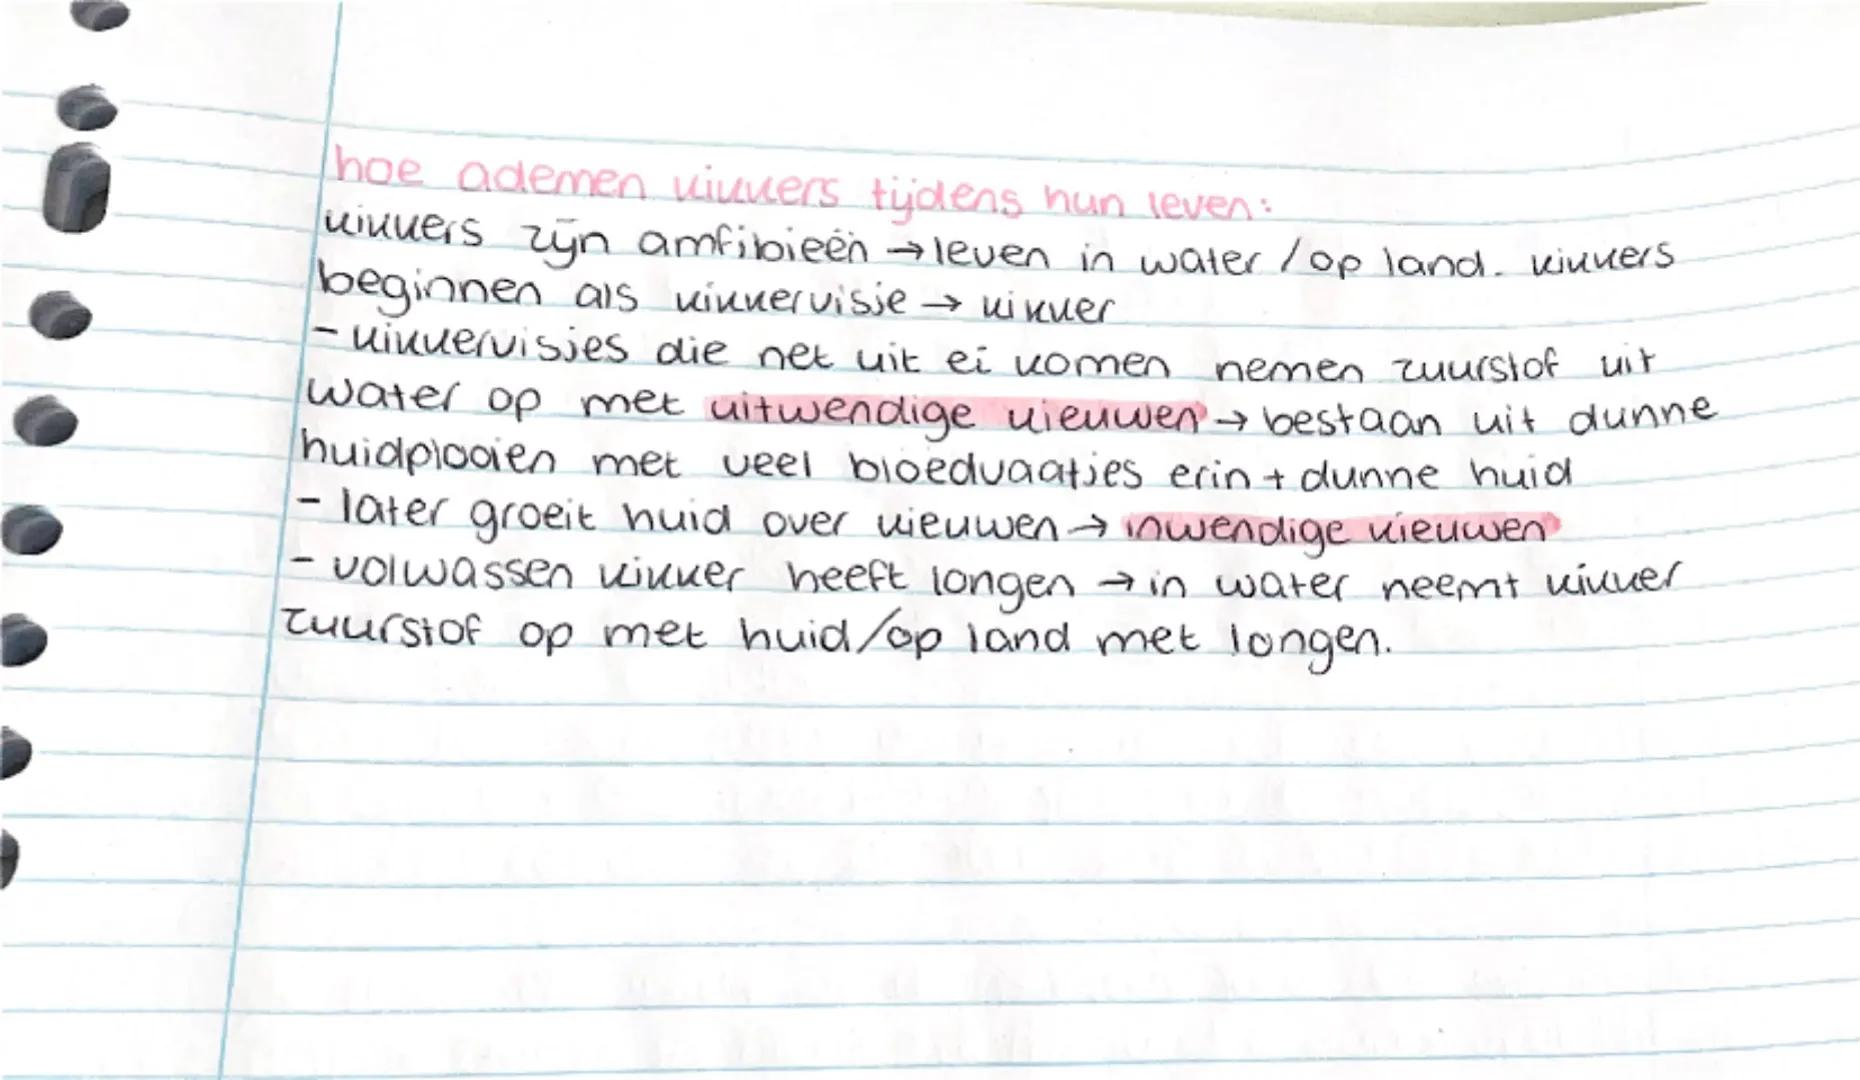 hoe ademen kikkers tijdens hun leven:
kikkers zijn amfibieën → leven in water / op land. kikkers
beginnen als kikkervisje → kikker
- kikkervisjes die net uit ei komen nemen zuurstof uit
water op met uitwendige kieuwen → bestaan uit dunne
huidplooien met veel bloedvaatjes erin + dunne huid
- later groeit huid over kieuwen → inwendige kieuwen
- volwassen kikker heeft longen → in water neemt kikker
zuurstof op met huid/op land met longen.